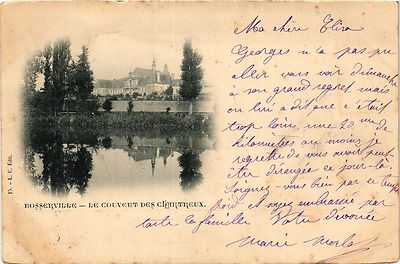 Ma chère Elisa
Georges n'a pas pu
aller vous voir dimanche
à son grand regret mais
on lui a dit que c'était
trop loin, une 20 ne de
kilomètres au moins je
regrette de vous avoir peut
être dérangée ce jour-là
Soignez-vous bien par ce temps
froid et soyez embrassée par
toute la famille Votre dévouée
Marie
BOSSERVILLE — LE COUVENT DES CHARTREUX.
L. C. Edit.